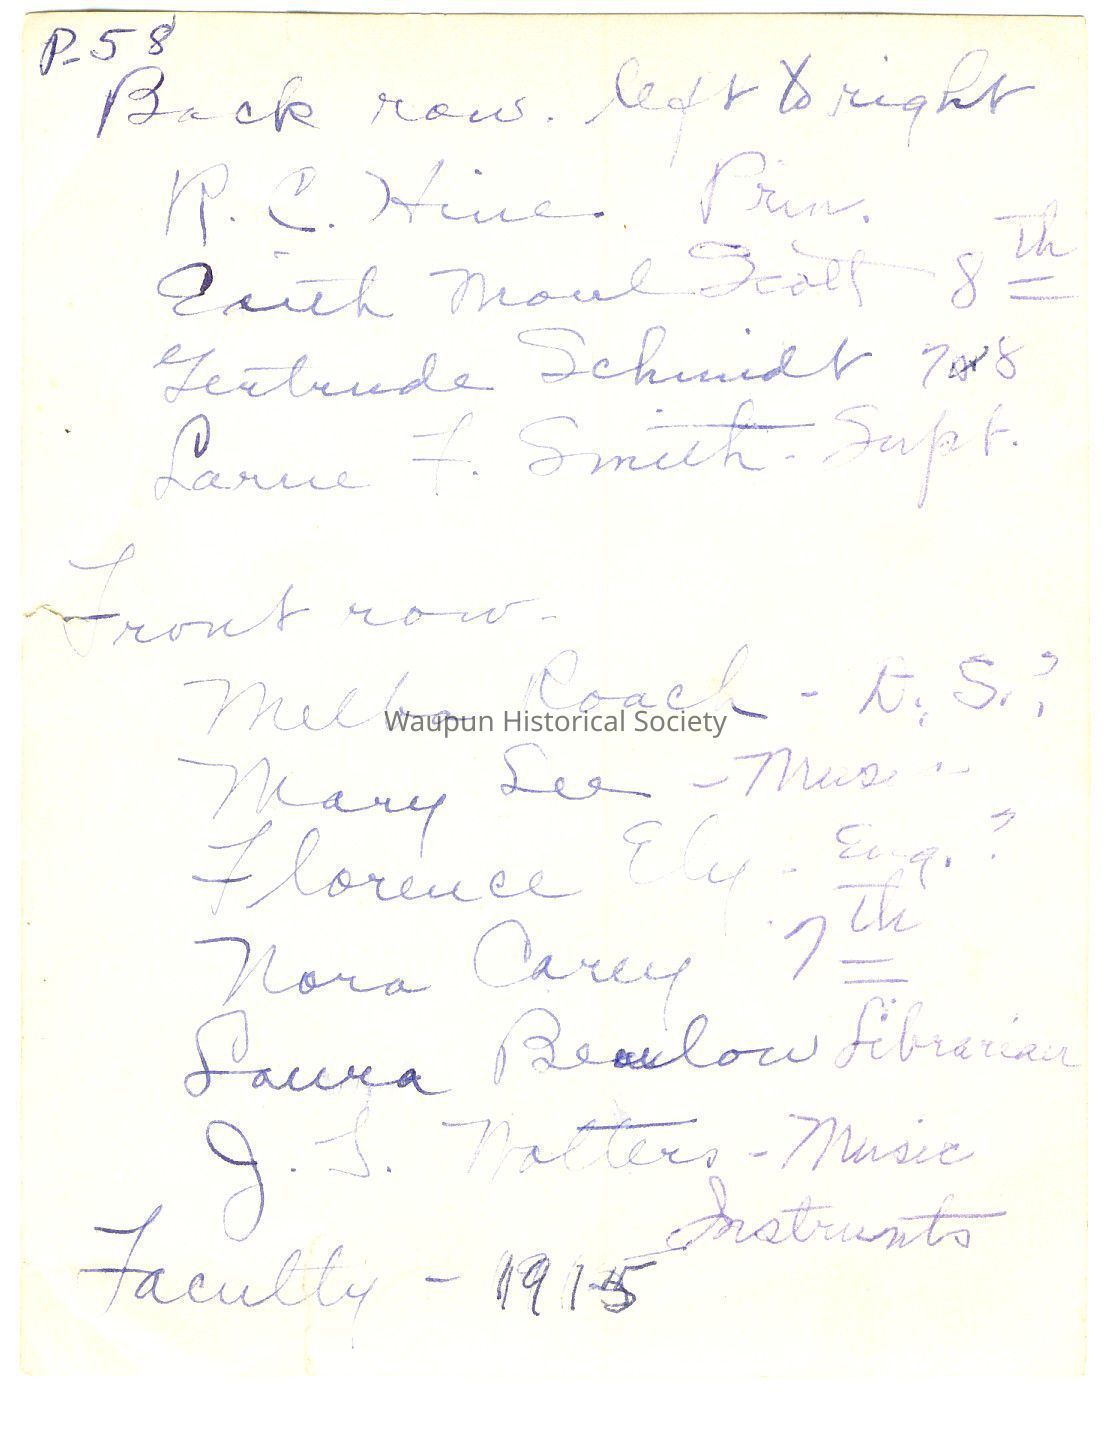 P-58
Back row. left to right
R. C. Hine. Prin.
Edith Moul Scott 8th
Gertrude Schmidt 7 & 8
Larue F. Smith - Supt.
Front row -
Melba Roach - D. S.?
Waupun Historical Society
Mary Lee - Music
Florence Ely - Eng.?
Nora Carey 7th
Laura Benlow Librarian
J. S. Wolters - Music
Instrunts
Faculty - 1915